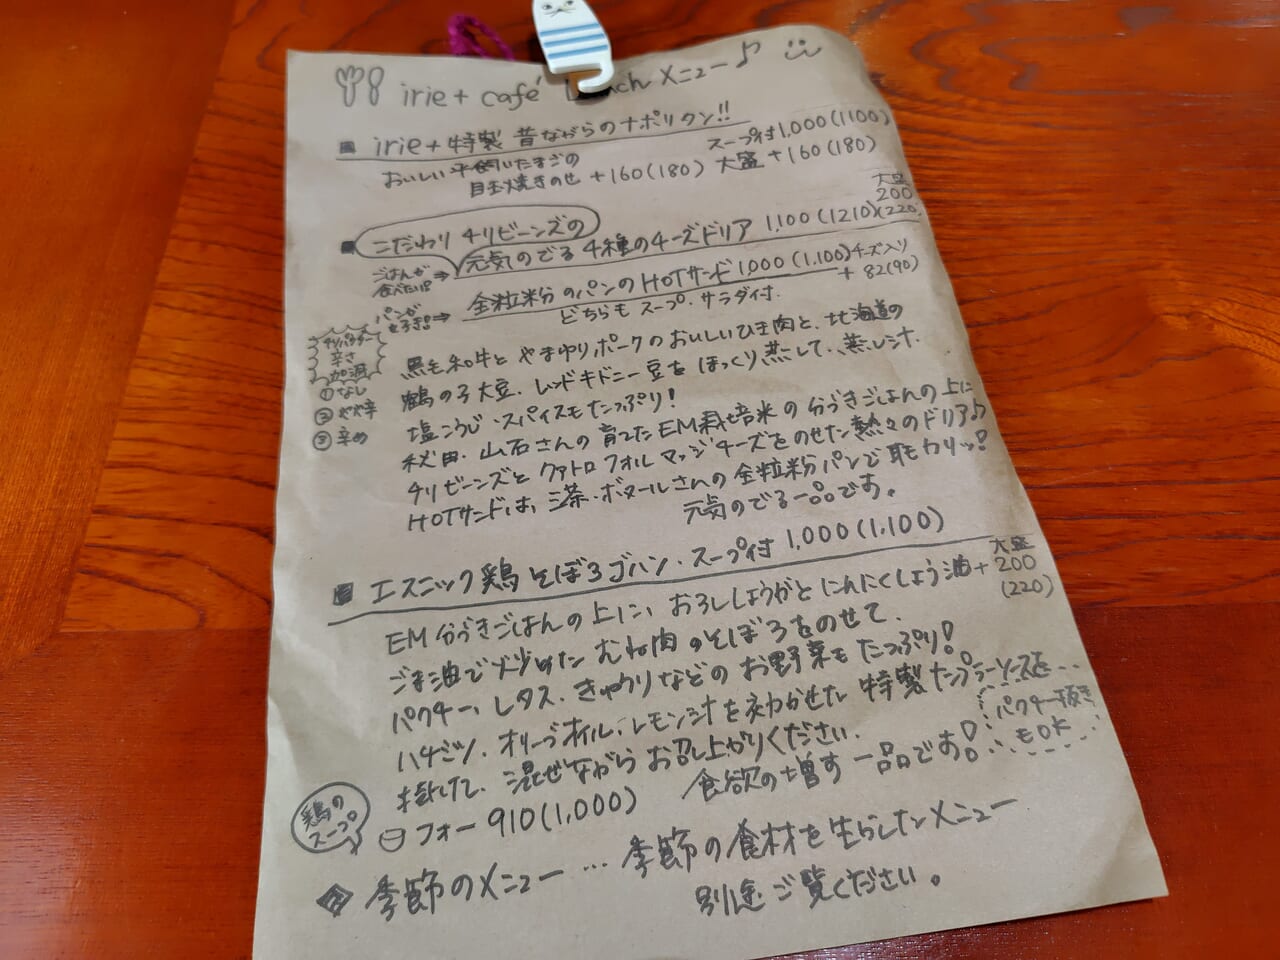 irie+ café Lunch メニュー♪
■ irie+ 特製 昔ながらのナポリタン!!
スープ付 1,000(1100)
おいしい平飼いたまごの
目玉焼きのせ +160(180) 大盛 +160(180)
■ こだわり チリビーンズの
大盛
200
(220)
元気のでる 4種のチーズドリア 1,100(1210)
ごはんが
食べたい!? ⇒
全粒粉のパンのHOTサンド 1,000(1,100)
チーズ入り
+ 82(90)
パンが
すき!? ⇒
どちらも スープ・サラダ付.
チリパウダー
辛さ
加減
①なし
②やや辛
③辛め
黒毛和牛と やまゆりポークのおいしいひき肉と、北海道の
鶴の子大豆、レッドキドニー豆を ほっくり蒸して、蒸し汁.
塩こうじ・スパイスもたっぷり!
秋田・山石さんの 育てたEM栽培米の 分づきごはんの上に
チリビーンズと クアトロフォルマッジチーズをのせた熱々のドリア♪
HOTサンドは、三茶・ボヌールさんの全粒粉パンで 耳もカリッ!
元気のでる一品です。
■ エスニック鶏そぼろゴハン・スープ付 1,000(1,100)
大盛
+200
(220)
EM分づきごはんの上に、おろししょうがと にんにくしょう油
ごま油で炒めた むね肉のそぼろをのせて.
パクチー、レタス、きゅうりなどの お野菜も たっぷり!
ハチミツ、オリーブオイル、レモン汁を効かせた 特製 ナンプラーソースを...
掛けて、混ぜながら お召し上がりください.
パクチー抜き
もOK
食欲の増す 一品です!
鶏の
スープ
フォー 910(1,000)
季節のメニュー … 季節の食材を生かしたメニュー
別途ご覧ください。